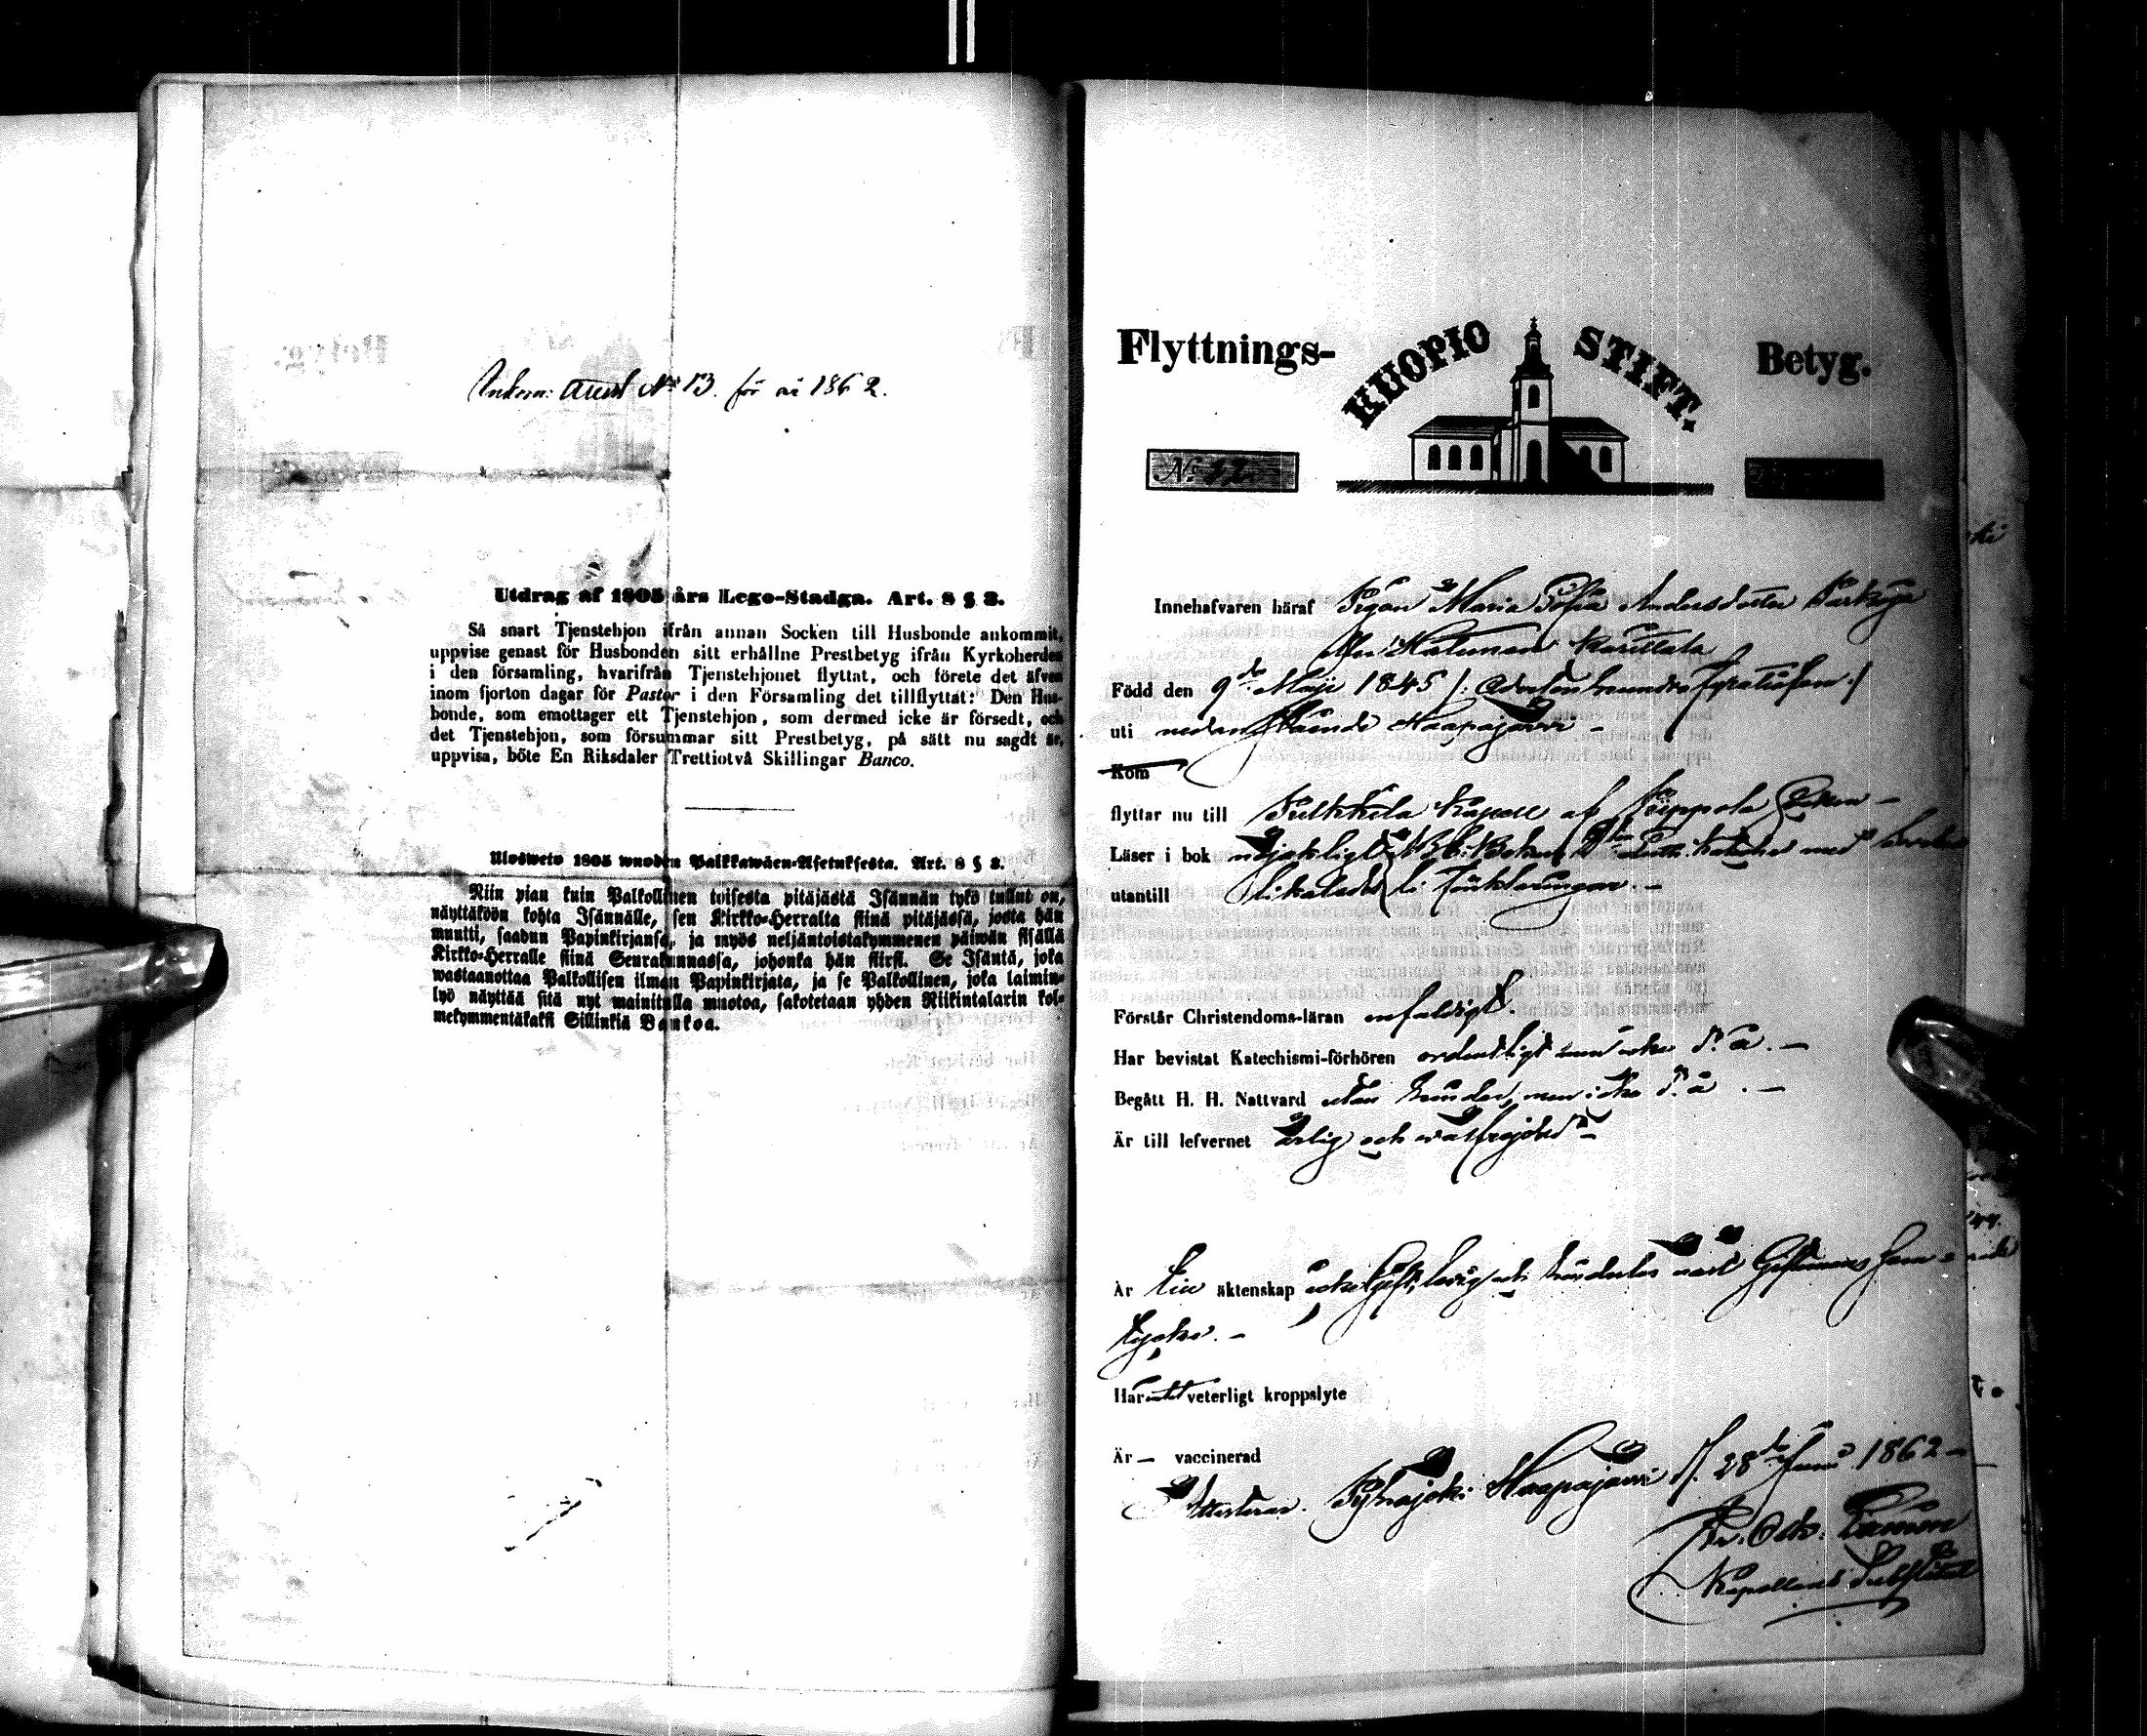 Inkom: attest № 13. för år 1862.
Utdrag af 1805 års Lego-Stadga. Art. 8 § 3.
Så snart Tjenstehjon ifrån annan Socken till Husbonde ankommit,
uppvise genast för Husbonden sitt erhållne Prestbetyg ifrån Kyrkoherden
i den församling, hvarifrån Tjenstehjonet flyttat, och förete det äfven
inom fjorton dagar för Pastor i den Församling det tillflyttat: Den Hus-
bonde, som emottager ett Tjenstehjon, som dermed icke är försedt, och
det Tjenstehjon, som försummar sitt Prestbetyg, på sätt nu sagdt är,
uppvisa, böte En Riksdaler Trettiotvå Skillingar Banco.
Uloswето 1805 wuoden Palkkawäen-Asetuksesta. Art. 8 § 3.
Niin pian kuin Palkollinen toisesta pitäjästä Isännän tykö tullut on,
näyttäköön kohta Isännälle, sen Kirkko-Herralta siinä pitäjässä, josta hän
muutti, saadun Papinkirjansa, ja myös neljäntoistakymmenen päiwän sisällä
Kirkko-Herralle siinä Seurakunnassa, johonka hän siirsi. Se Isäntä, joka
wastaanottaa Palkollisen ilman Papinkirjata, ja se Palkollinen, joka laimin-
lyö näyttää sitä nyt mainitulla muotoa, sakotetaan yhden Riikintalarin kol-
mekymmentäkaksi Sillinkiä Bankoa.
Flyttnings- KUOPIO STIFT. Betyg.
N:
Innehafvaren häraf Pigan Maria Sofia Andersdotter
Född den 9de Maji 1845
uti nedanstående Haapajärvi -
Kom
flyttar nu till Pulkkila Kapell af Piippola Socken -
Läser i bok
utantill
Förstår Christendoms-läran enfaldigt.
Har bevistat Katechismi-förhören ordentligt men icke d. å. -
Begått H. H. Nattvard utan hinder, men icke d. å. -
Är till lefvernet ärlig och wälfrejdad -
Är till äktenskap ledig och hinderlös
tycke. -
Har veterligt kroppslyte
Är - vaccinerad
Attesterar. Pyhäjoki Haapajärvi d. 28de Juni 1862 -